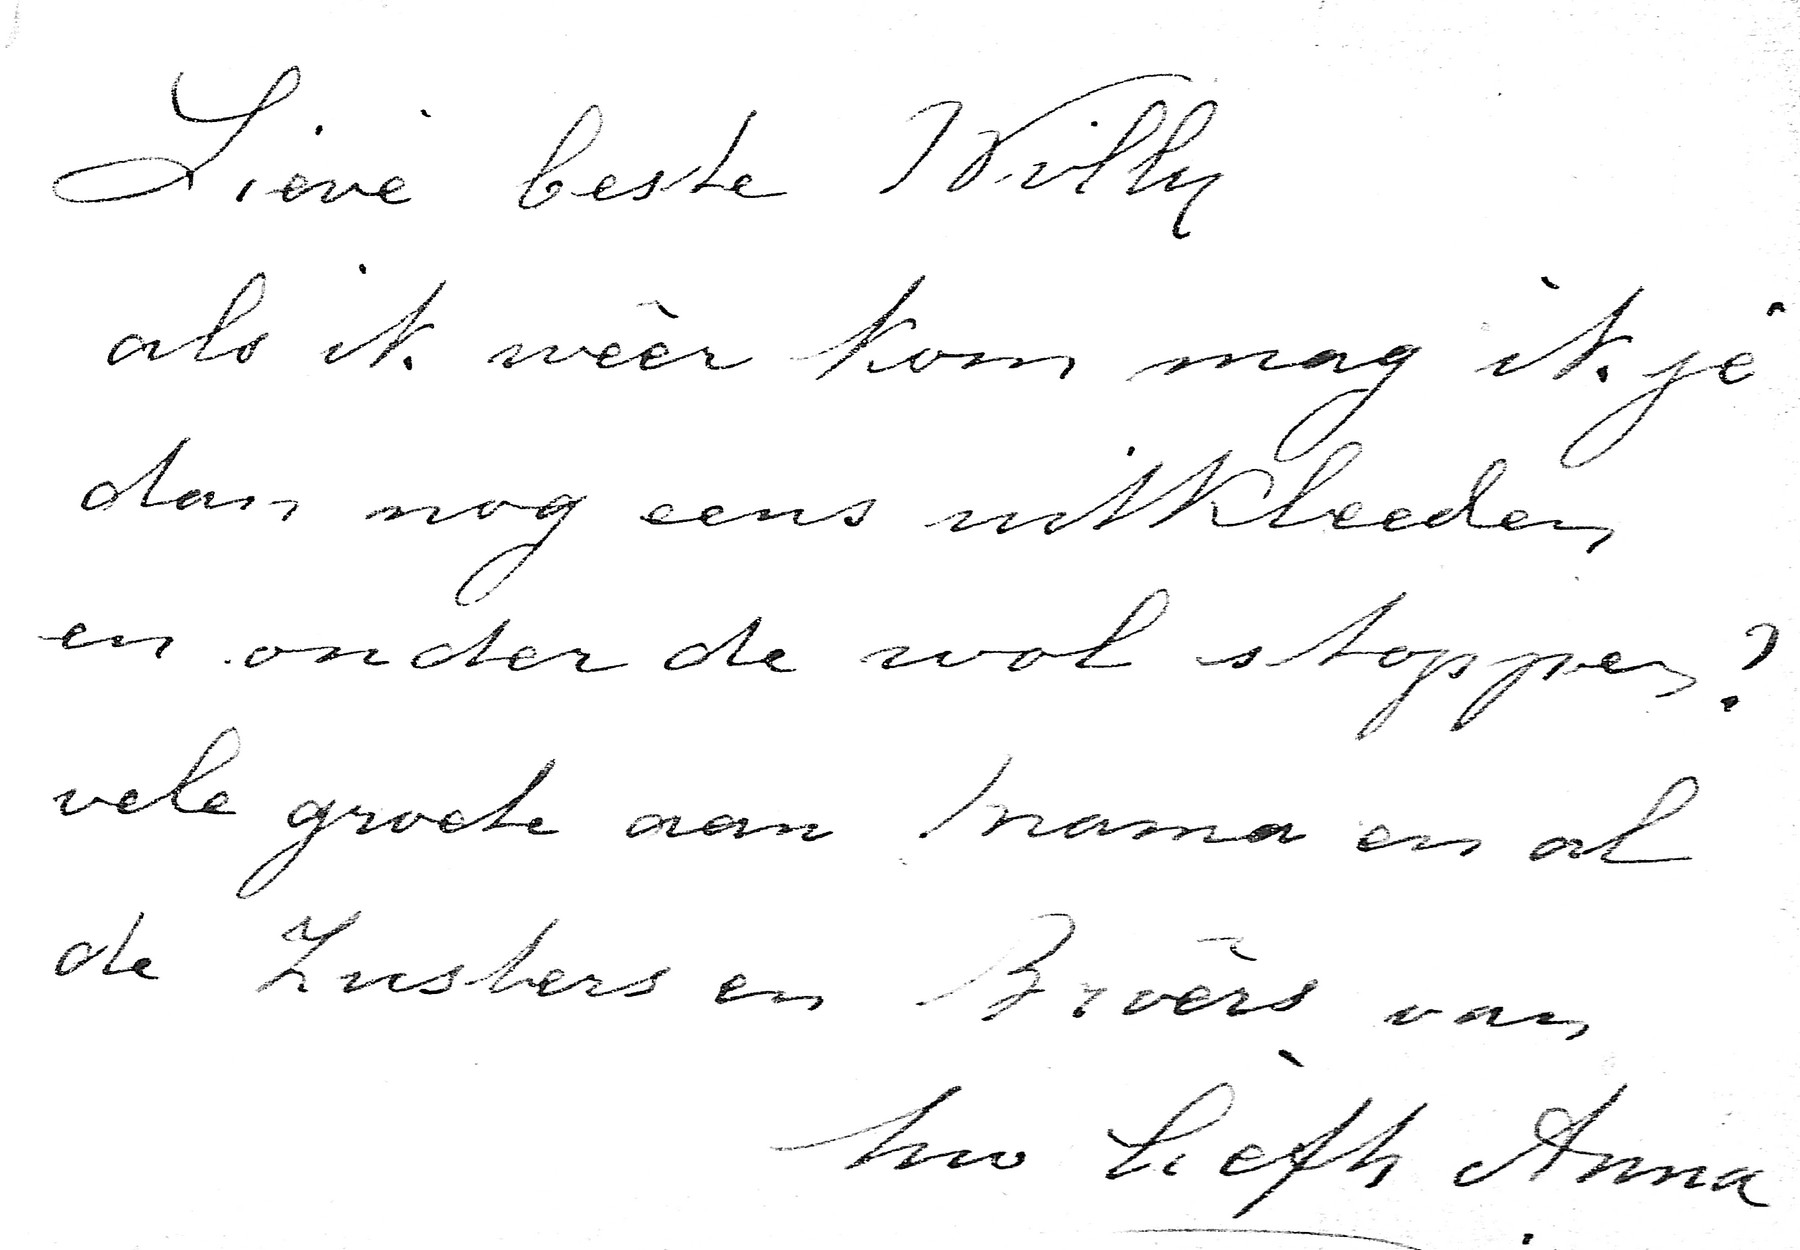 Lieve beste Willy
als ik wêer kom mag ik je
dan nog eens uitkleeden
en onder de wol stoppen?
vele groete aan Mama en al
de Zusters en Broêrs van
Uw Liefh Anna